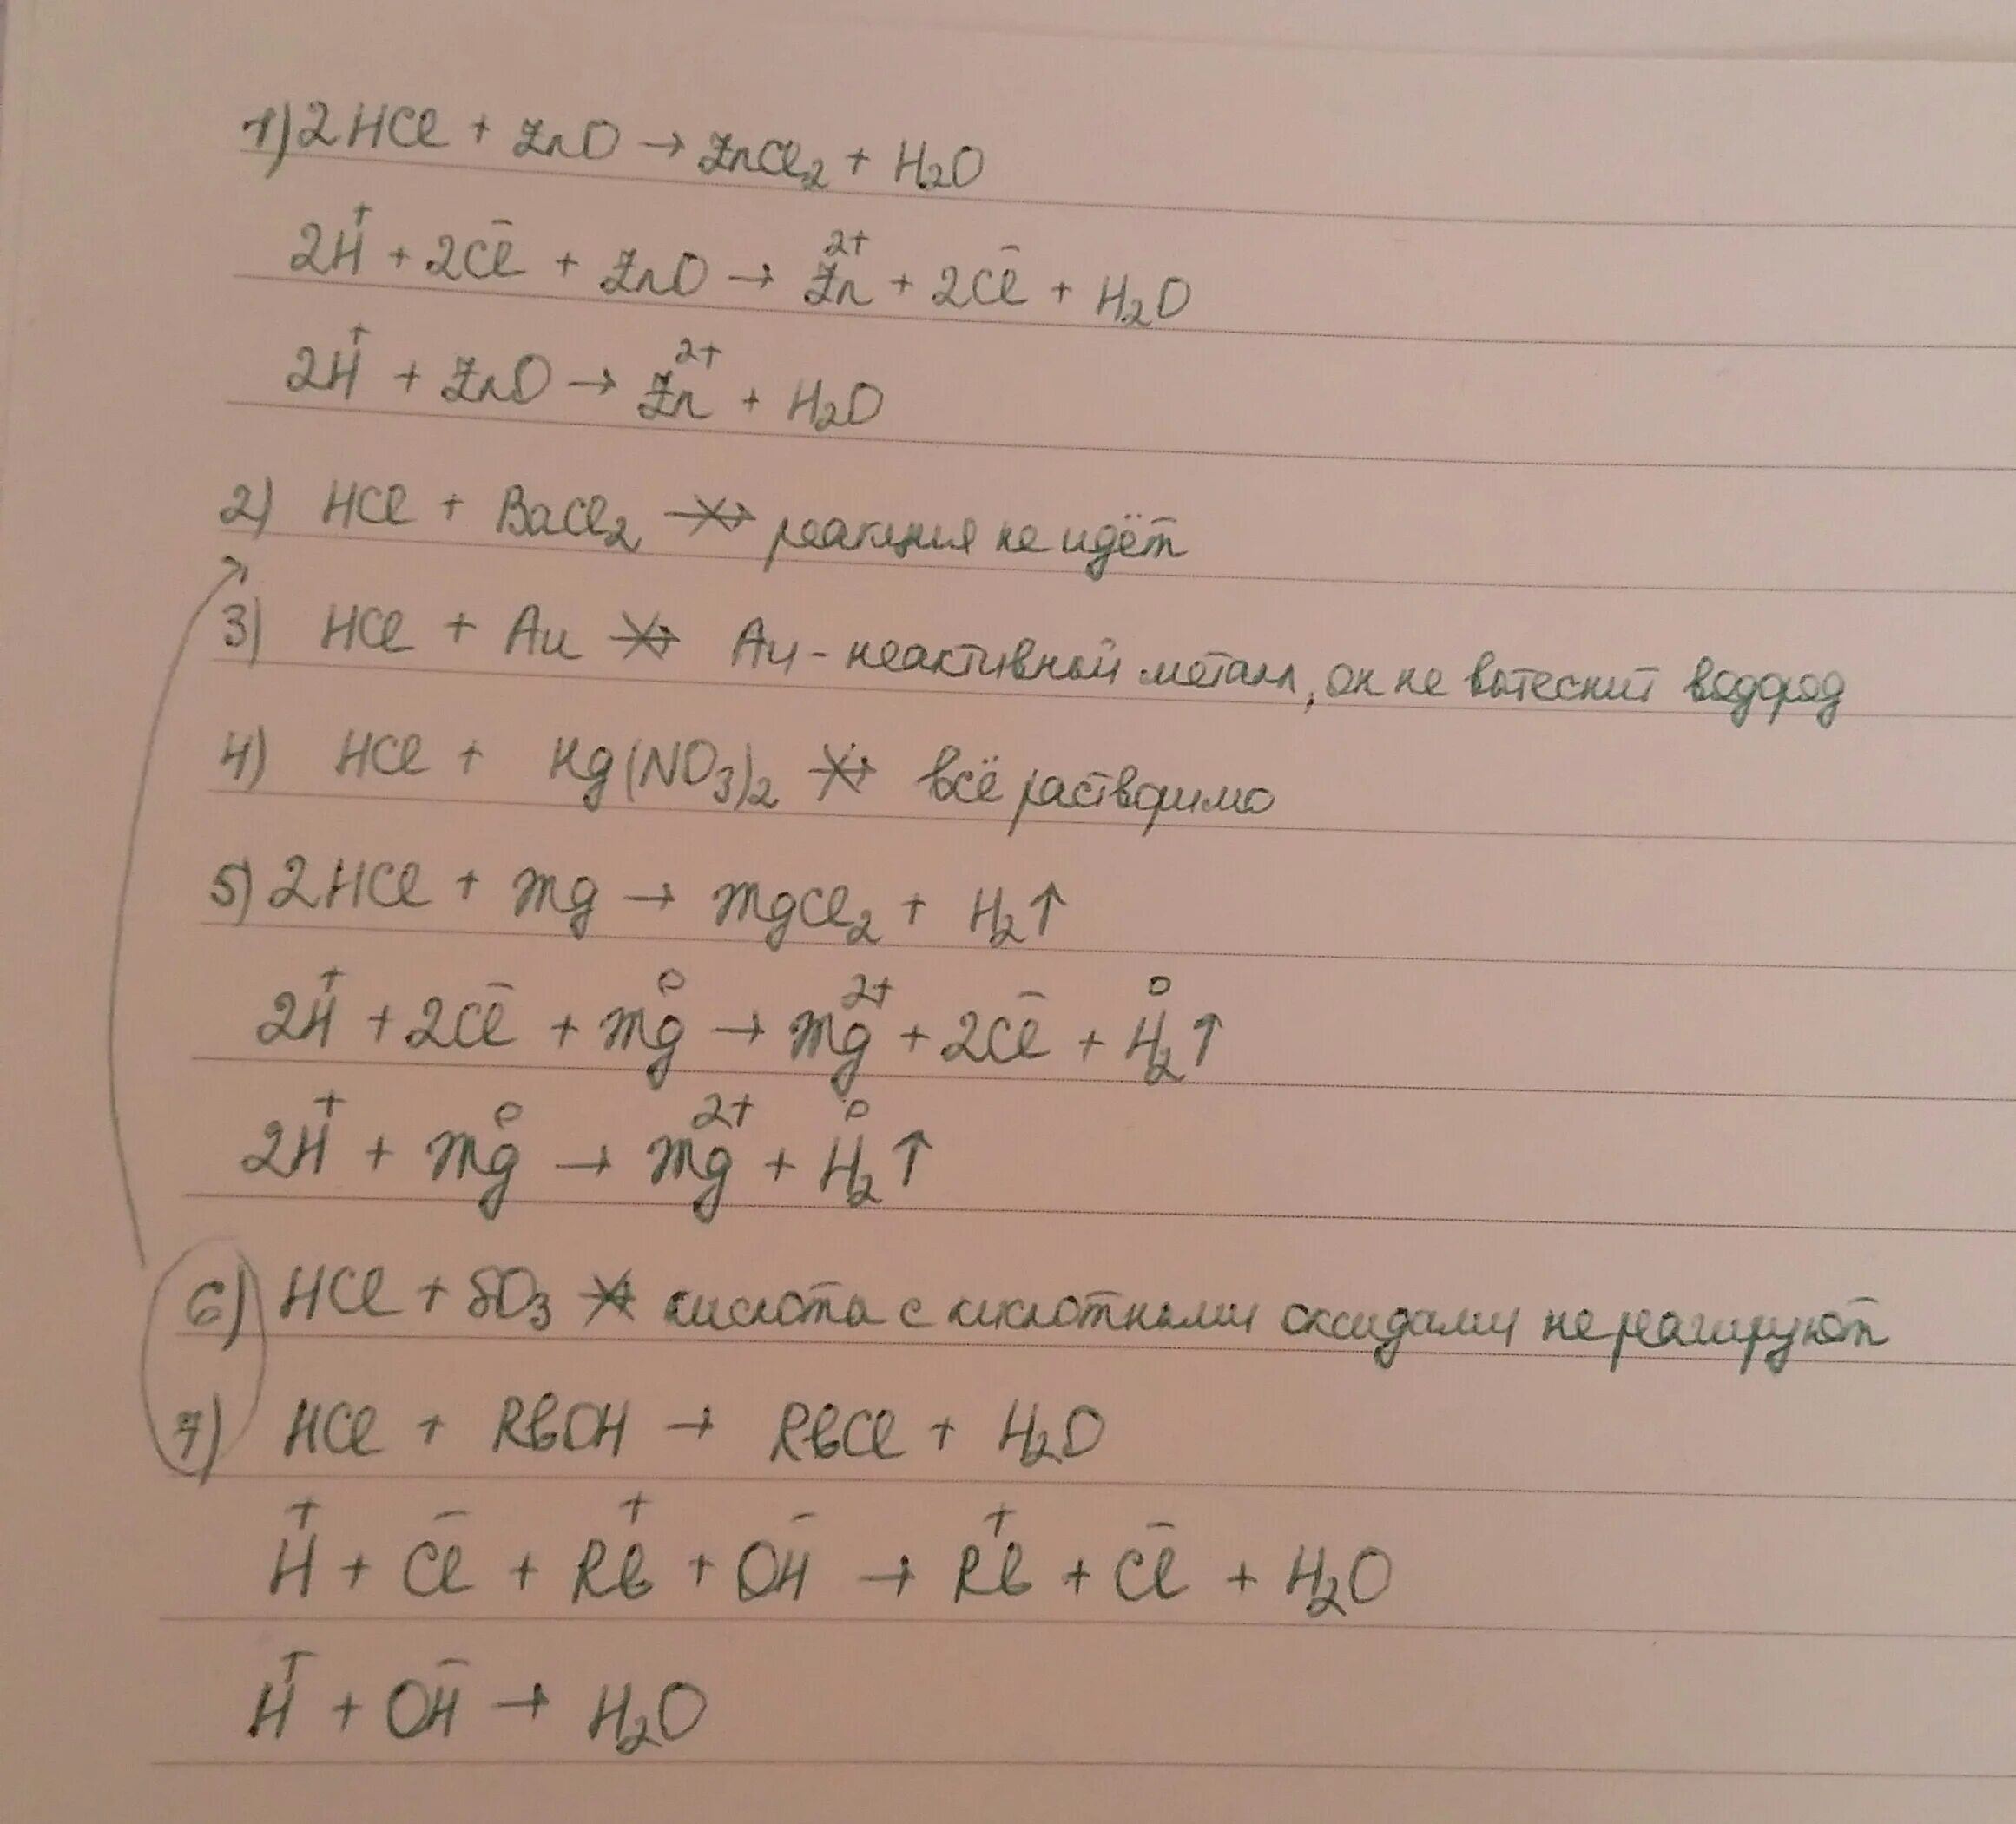 1) 2HCl + ZnO → ZnCl₂ + H₂O
2H⁺ + 2Cl⁻ + ZnO → Zn²⁺ + 2Cl⁻ + H₂O
2H⁺ + ZnO → Zn²⁺ + H₂O
2) HCl + BaCl₂ ↛ реакция не идёт
3) HCl + Au ↛ Au - неактивный металл, он не вытеснит водород
4) HCl + Hg(NO₃)₂ ↛ всё растворимо
5) 2HCl + Mg → MgCl₂ + H₂↑
2H⁺ + 2Cl⁻ + Mg⁰ → Mg²⁺ + 2Cl⁻ + H₂⁰↑
2H⁺ + Mg⁰ → Mg²⁺ + H₂⁰↑
6) HCl + SO₃ ↛ кислота с кислотными оксидами не реагируют
7) HCl + RbOH → RbCl + H₂O
H⁺ + Cl⁻ + Rb⁺ + OH⁻ → Rb⁺ + Cl⁻ + H₂O
H⁺ + OH⁻ → H₂O